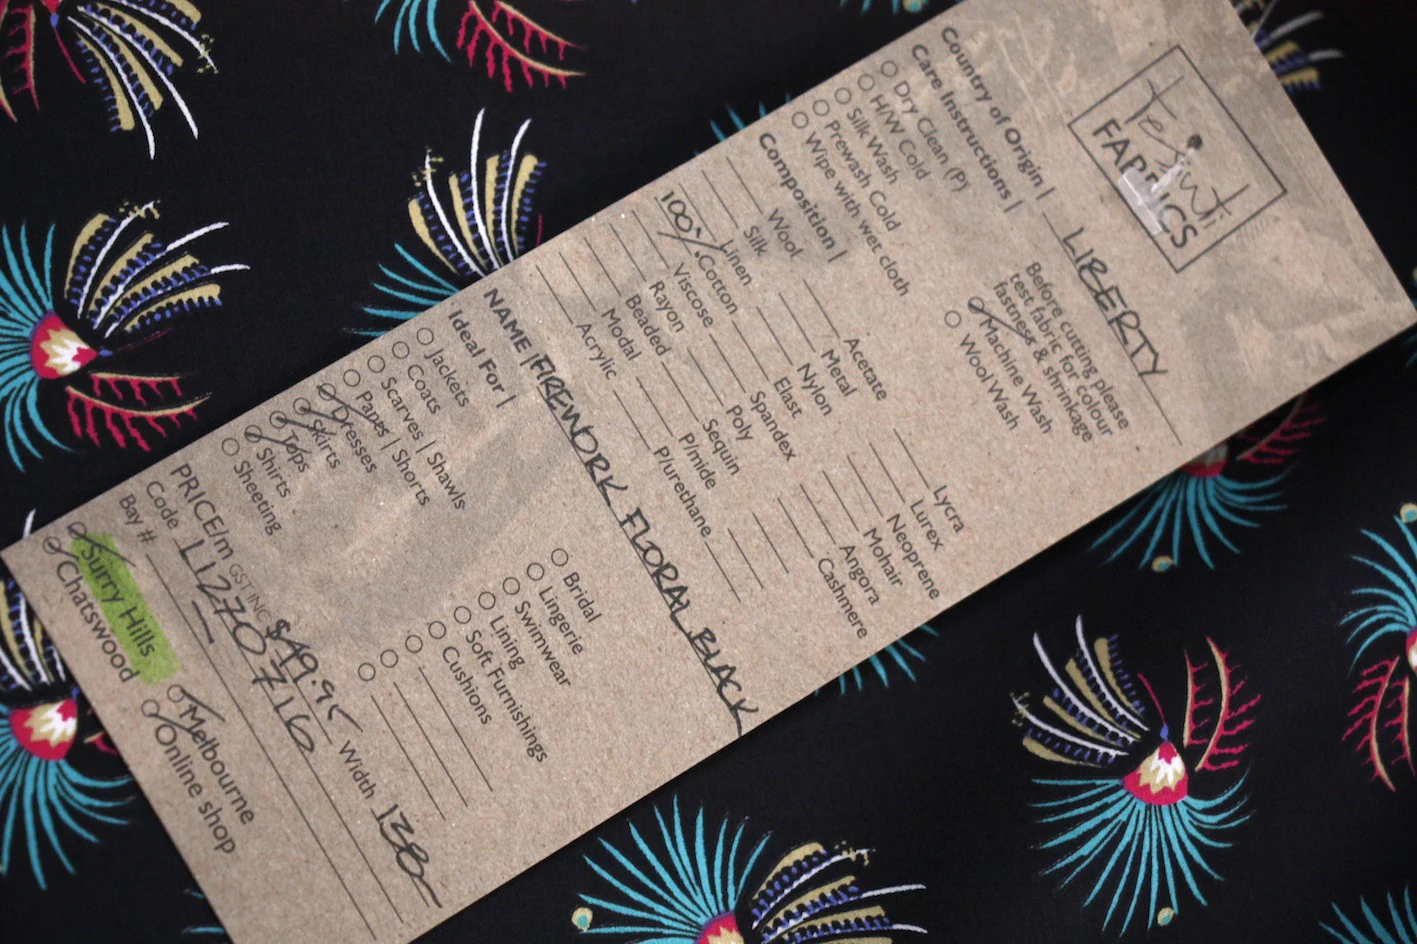 Tessuti
FABRICS
Country of Origin | LIBERTY
Care Instructions |
Dry Clean (P)
H/W Cold
Silk Wash
Prewash Cold
Wipe with wet cloth
Before cutting please
test fabric for colour
fastness & shrinkage
Machine Wash
Wool Wash
Composition |
Wool
Silk
Linen
100% Cotton
Viscose
Rayon
Beaded
Modal
Acrylic
Acetate
Metal
Nylon
Elast
Spandex
Poly
Sequin
P/mide
P/urethane
Lycra
Lurex
Neoprene
Mohair
Angora
Cashmere
NAME | FIREWORK FLORAL BLACK
Ideal For |
Jackets
Coats
Scarves | Shawls
Pants | Shorts
Dresses
Skirts
Tops
Shirts
Sheeting
Bridal
Lingerie
Swimwear
Lining
Soft Furnishings
Cushions
PRICE/m GST INC $49.95 Width 138
Code L1270716
Bay #
Surry Hills
Chatswood
Melbourne
Online shop